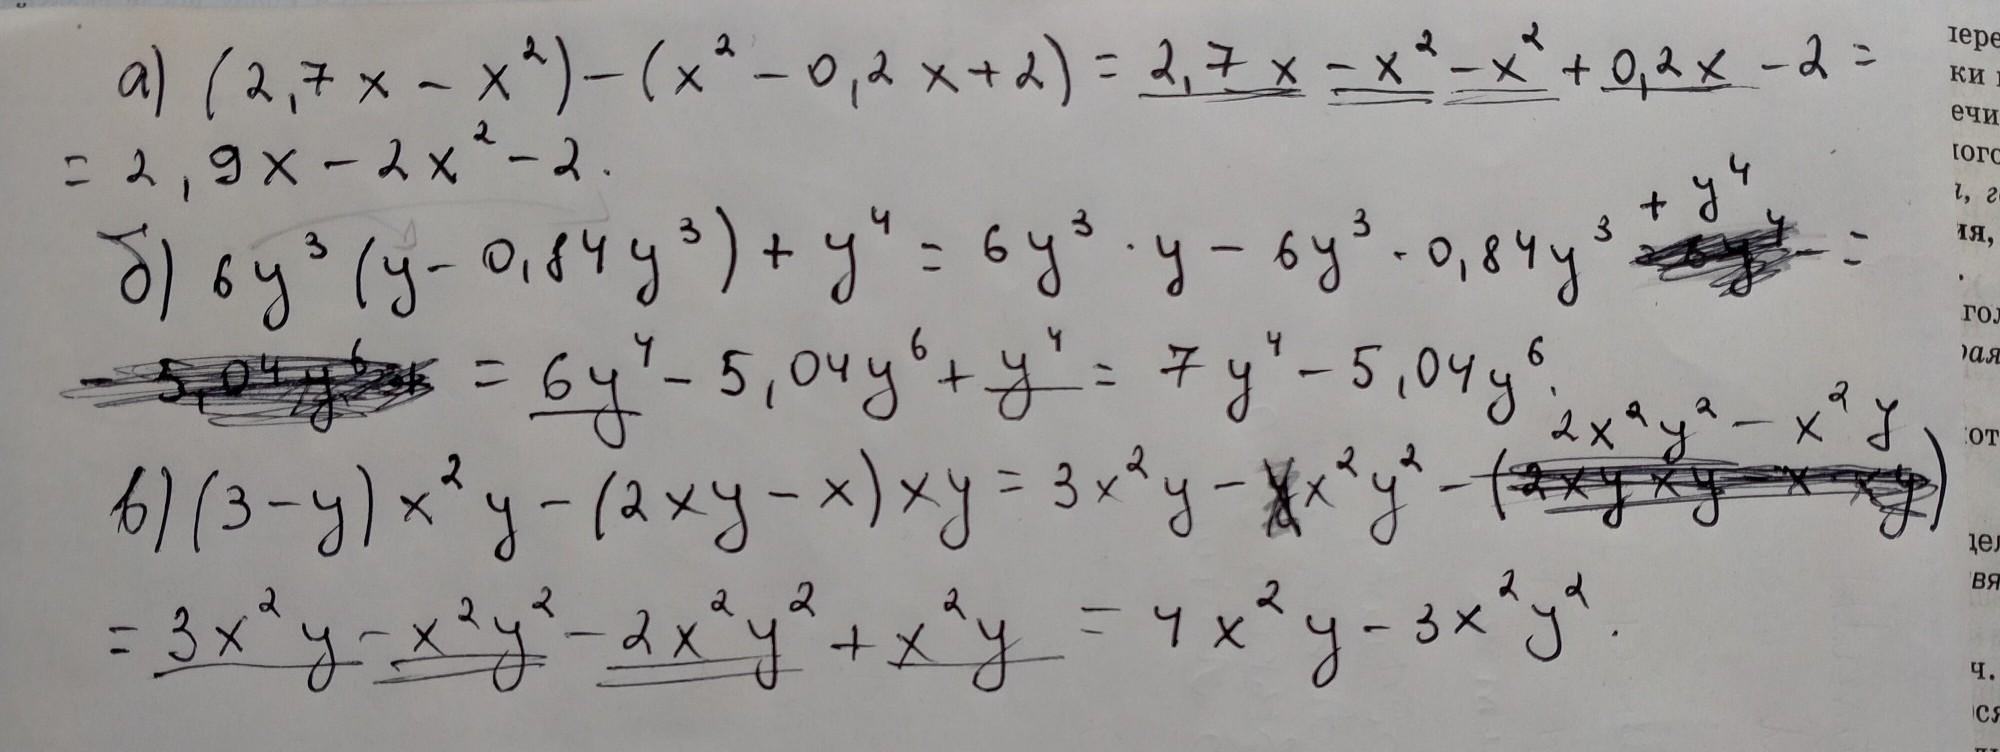 а) (2,7x - x²) - (x² - 0,2x + 2) = 2,7x - x² - x² + 0,2x - 2 =
= 2,9x - 2x² - 2.
б) 6y³ (y - 0,84y³) + y⁴ = 6y³ · y - 6y³ · 0,84y³ + y⁴ =
= 6y⁴ - 5,04y⁶ + y⁴ = 7y⁴ - 5,04y⁶.
в) (3 - y) x²y - (2xy - x) xy = 3x²y - x²y² - (2x²y² - x²y)
= 3x²y - x²y² - 2x²y² + x²y = 4x²y - 3x²y².